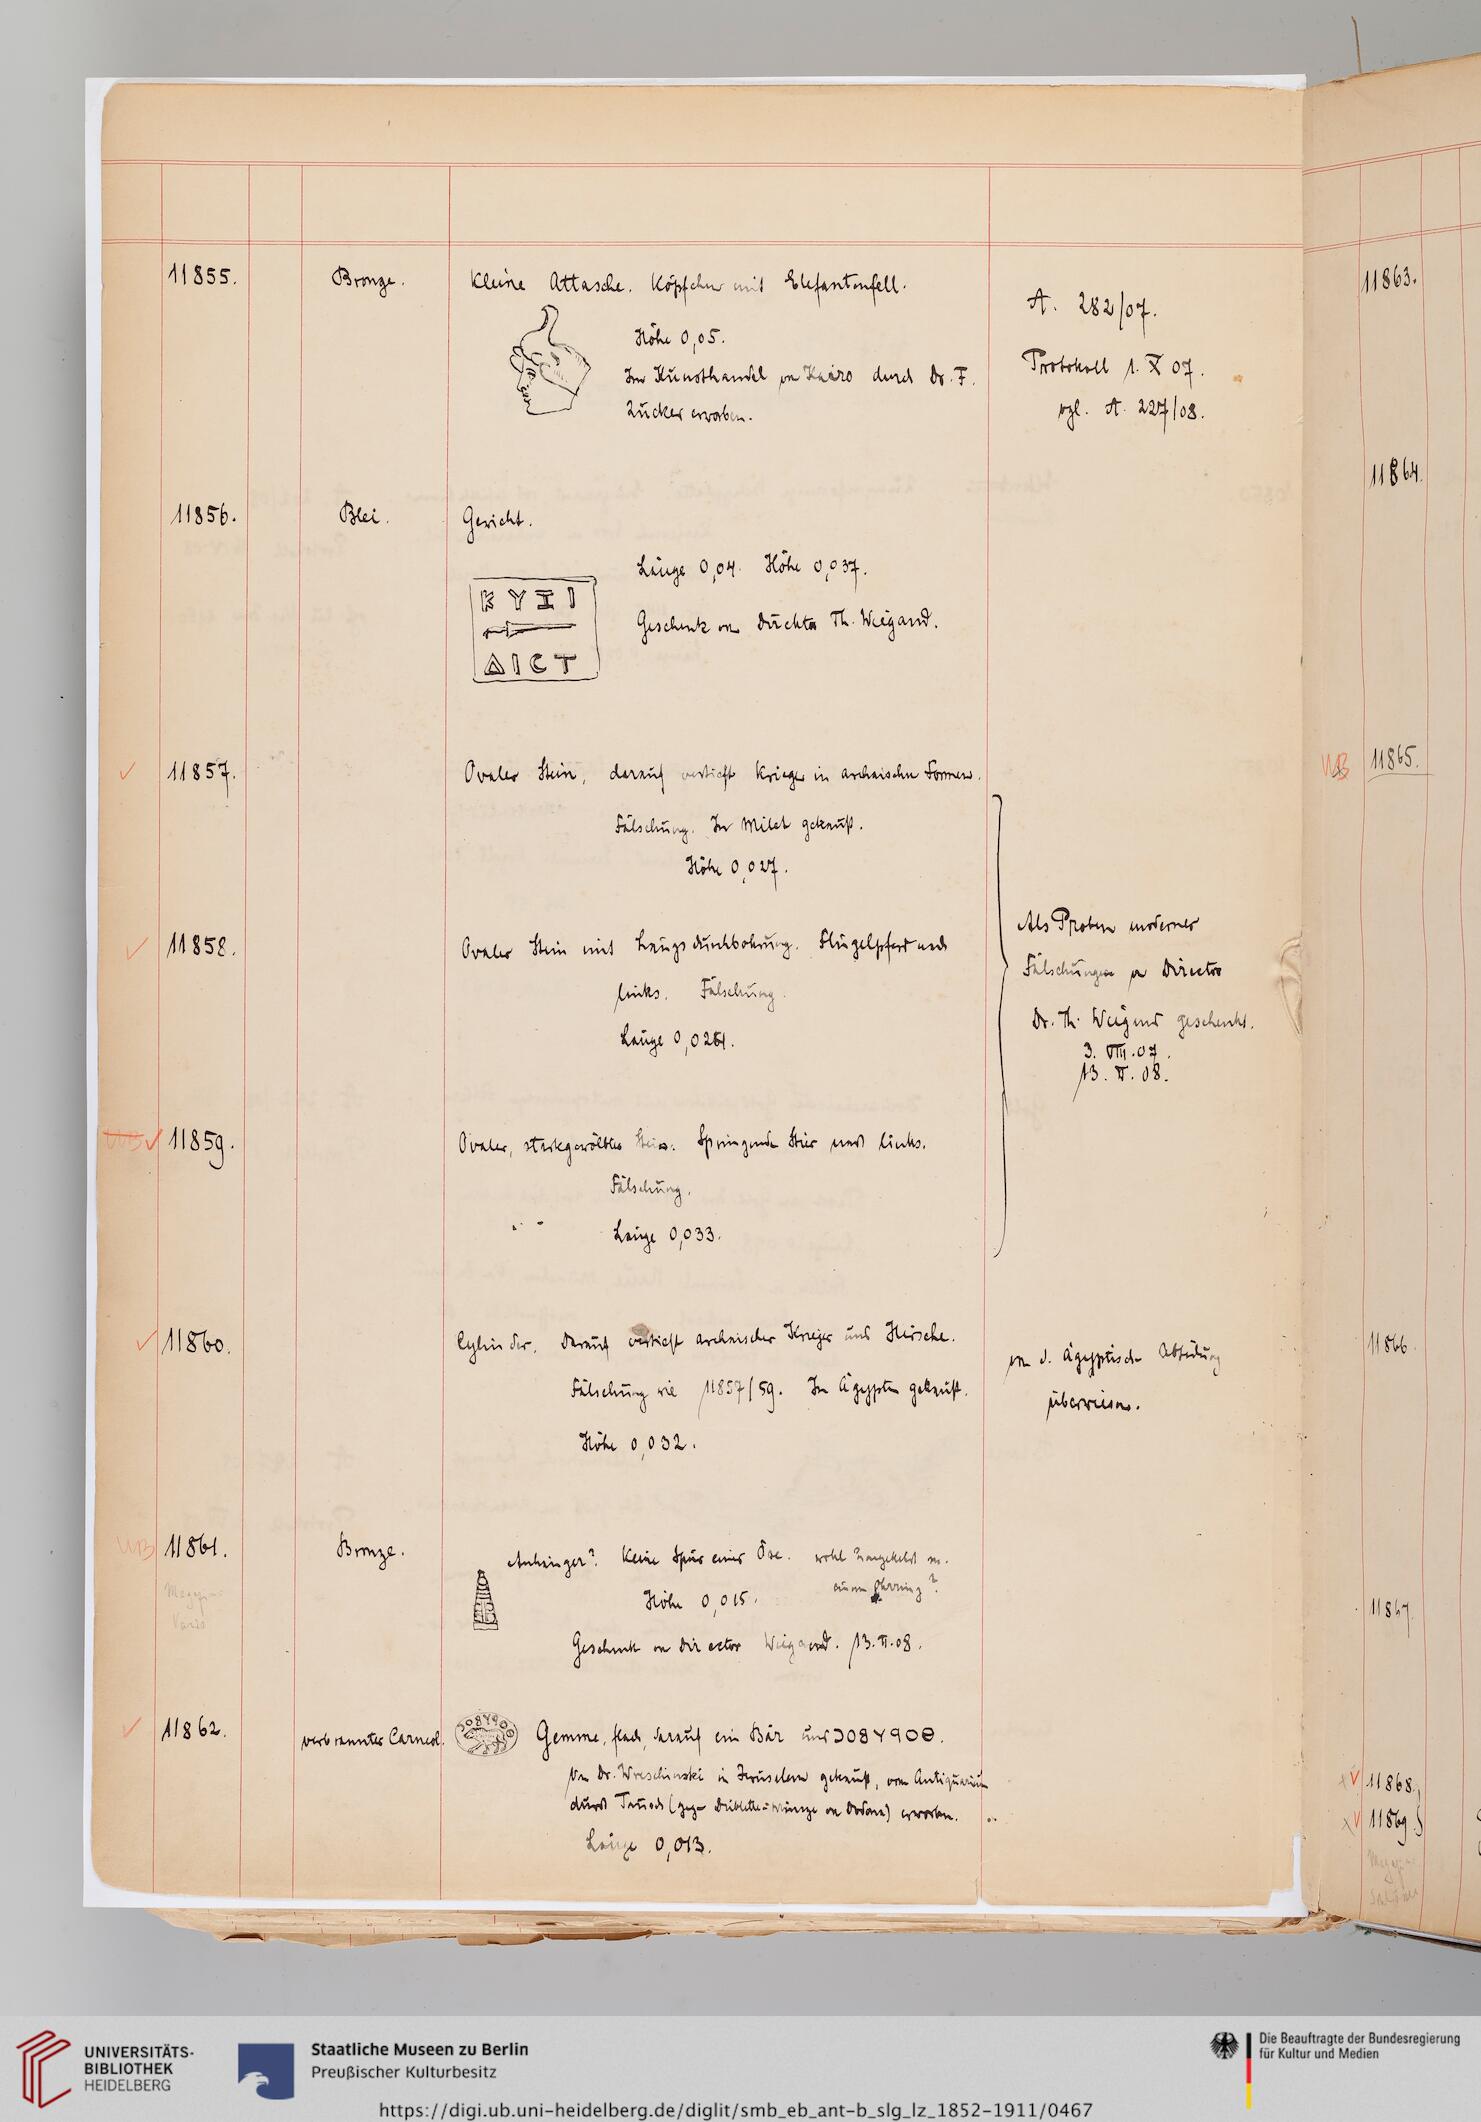 11855.
Bronze.
Kleine Attasche. Köpfchen mit Elefantenfell.
Höhe 0,05.
Im Kunsthandel von Kairo durch Dr. F.
Zucker erworben.
A. 282/07.
Protokoll 1. X 07.
vgl. A. 227/08.
11856.
Blei.
Gewicht.
Länge 0,04. Höhe 0,037.
Geschenk von Direktor Th. Wiegand.
ΚΥΖΙ
ΔΙCΤ
11857.
Ovaler Stein, darauf vertieft Krieger in archaischen Formen.
Fälschung. In Milet gekauft.
Höhe 0,027.
11858.
Ovaler Stein mit Längsdurchbohrung. Flügelpferd nach
links. Fälschung.
Länge
Als Proben moderner
Fälschungen von Director
Dr. Th. Wiegand geschenkt.
3. VIII. 07.
13. II. 08.
WB 11859.
Ovaler, starkgewölbter Stein. Springender Stier nach links.
Fälschung.
Länge 0,033.
11860.
Cylinder. Darauf vertieft archaischer Krieger und Hirsche.
Fälschung wie 11857/59. In Ägypten gekauft.
Höhe 0,032.
von d. Ägyptischen Abteilung
überwiesen.
WB 11861.
Bronze.
Anhänger? Keine Spur einer Öse. wohl
einem Ohrring?
Höhe 0,015.
Geschenk von Director Wiegand. 13. II. 08.
11862.
verbrannter Carneol.
Gemme, flach, darauf ein Bär und
Von Dr. Wreschinski in Jerusalem gekauft, vom Antiquarium
durch Tausch (gegen von Dodona) erworben.
Länge 0,013.
11863.
11864.
WB 11865.
11866.
11867.
11868.
11869.
UNIVERSITÄTS-
BIBLIOTHEK
HEIDELBERG
Staatliche Museen zu Berlin
Preußischer Kulturbesitz
Die Beauftragte der Bundesregierung
für Kultur und Medien
https://digi.ub.uni-heidelberg.de/diglit/smb_eb_ant-b_slg_lz_1852-1911/0467